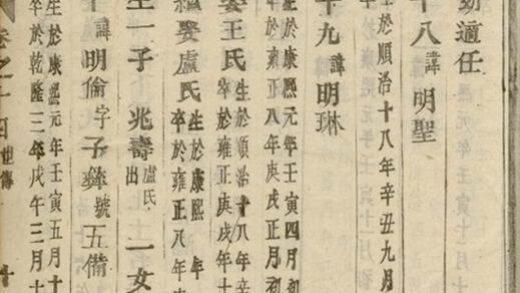 適任
十八諱明聖
於順治十八年辛丑九月
十九諱明琳
於康熙元年壬寅四月初
於雍正八年庚戌正月初
娶王氏生於順治十八年辛
卒於雍正庚戌年十
繼娶盧氏生於康熙 年
卒於雍正八年
生一子 兆壽盧氏出 一女
十諱明倫字子彝號五備
生於康熙元年壬寅五月十
卒於乾隆三年戊午三月十
卷之 世傳 十